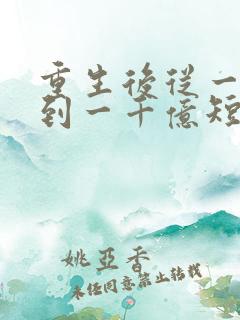 重生後從一
到一千億短
姚亞香
未經同意禁止轉載